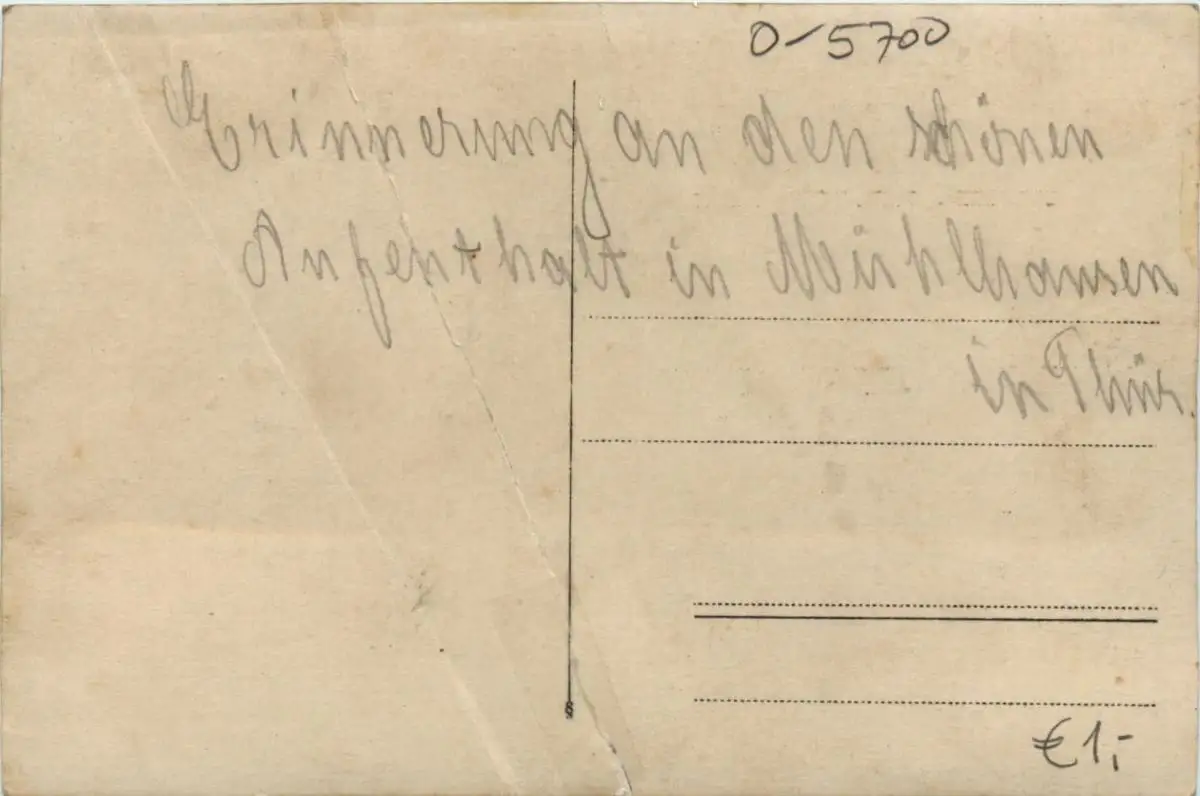 0-5700
Erinnerung an den schönen
Aufenthalt in Mühlhausen
in Thür.
€1,-